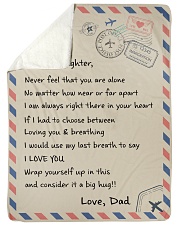 ghter,
Never feel that you are alone
No matter how near or far apart
I am always right there in your heart
If I had to choose between
Loving you & breathing
I would use my last breath to say
I LOVE YOU
Wrap yourself up in this
and consider it a big hug!!
Love, Dad